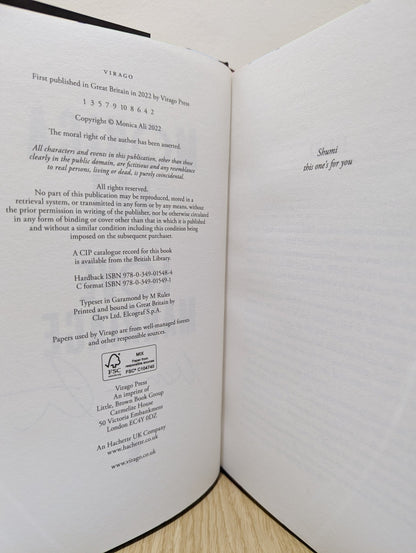 VIRAGO
First published in Great Britain in 2022 by Virago Press
1 3 5 7 9 10 8 6 4 2
Copyright © Monica Ali 2022
The moral right of the author has been asserted.
All characters and events in this publication, other than those
clearly in the public domain, are fictitious and any resemblance
to real persons, living or dead, is purely coincidental.
All rights reserved.
No part of this publication may be reproduced, stored in a
retrieval system, or transmitted in any form or by any means, without
the prior permission in writing of the publisher, nor be otherwise circulated
in any form of binding or cover other than that in which it is published
and without a similar condition including this condition being
imposed on the subsequent purchaser.
A CIP catalogue record for this book
is available from the British Library.
Hardback ISBN 978-0-349-01548-4
C format ISBN 978-0-349-01549-1
Typeset in Garamond by M Rules
Printed and bound in Great Britain by
Clays Ltd, Elcograf S.p.A.
Papers used by Virago are from well-managed forests
and other responsible sources.
FSC
MIX
Paper from
responsible sources
FSC® C104740
Virago Press
An imprint of
Little, Brown Book Group
Carmelite House
50 Victoria Embankment
London EC4Y 0DZ
An Hachette UK Company
www.hachette.co.uk
www.virago.co.uk
Shumi
this one's for you